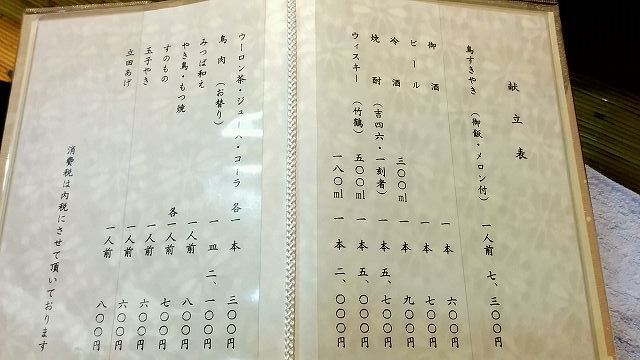 献立表
鳥すきやき （御飯・メロン付） 一人前 七、三〇〇円
御酒 一本 六〇〇円
ビール 一本 七〇〇円
冷酒 三〇〇ml 一本 九〇〇円
焼酎 （吉四六・一刻者） 一本 五、七〇〇円
ウィスキー （竹鶴） 五〇〇ml 一本 五、〇〇〇円
一八〇ml 一本 二、〇〇〇円
ウーロン茶・ジュース・コーラ 各一本 三〇〇円
鳥肉 （お替り） 一皿 二、一〇〇円
みつば和え 一人前 八〇〇円
やき鳥・もつ焼 各一人前 七〇〇円
すのもの 一人前 六〇〇円
玉子やき 一人前 六〇〇円
立田あげ 一人前 八〇〇円
消費税は内税にさせて頂いております